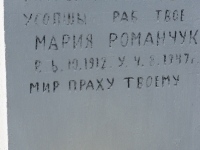 УСОПШЫ РАБ ТВОЕ
МАРИЯ РОМАНЧУК
Р. Б. 10. 1912 У. 4. 8. 1947 Г.
МИР ПРАХУ ТВОЕМУ